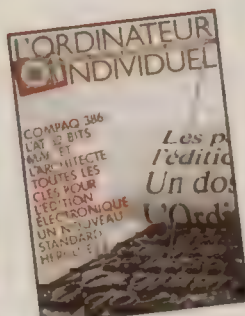 L'ORDINATEUR
INDIVIDUEL
COMPAQ 386
L'AT 32 BITS
ET
L'ARCHITECTE
TOUTES LES
CLES POUR
L'EDITION
ELECTRONIQUE
UN NOUVEAU
STANDARD
Les
l'éditio
Un dos
L'Ordi